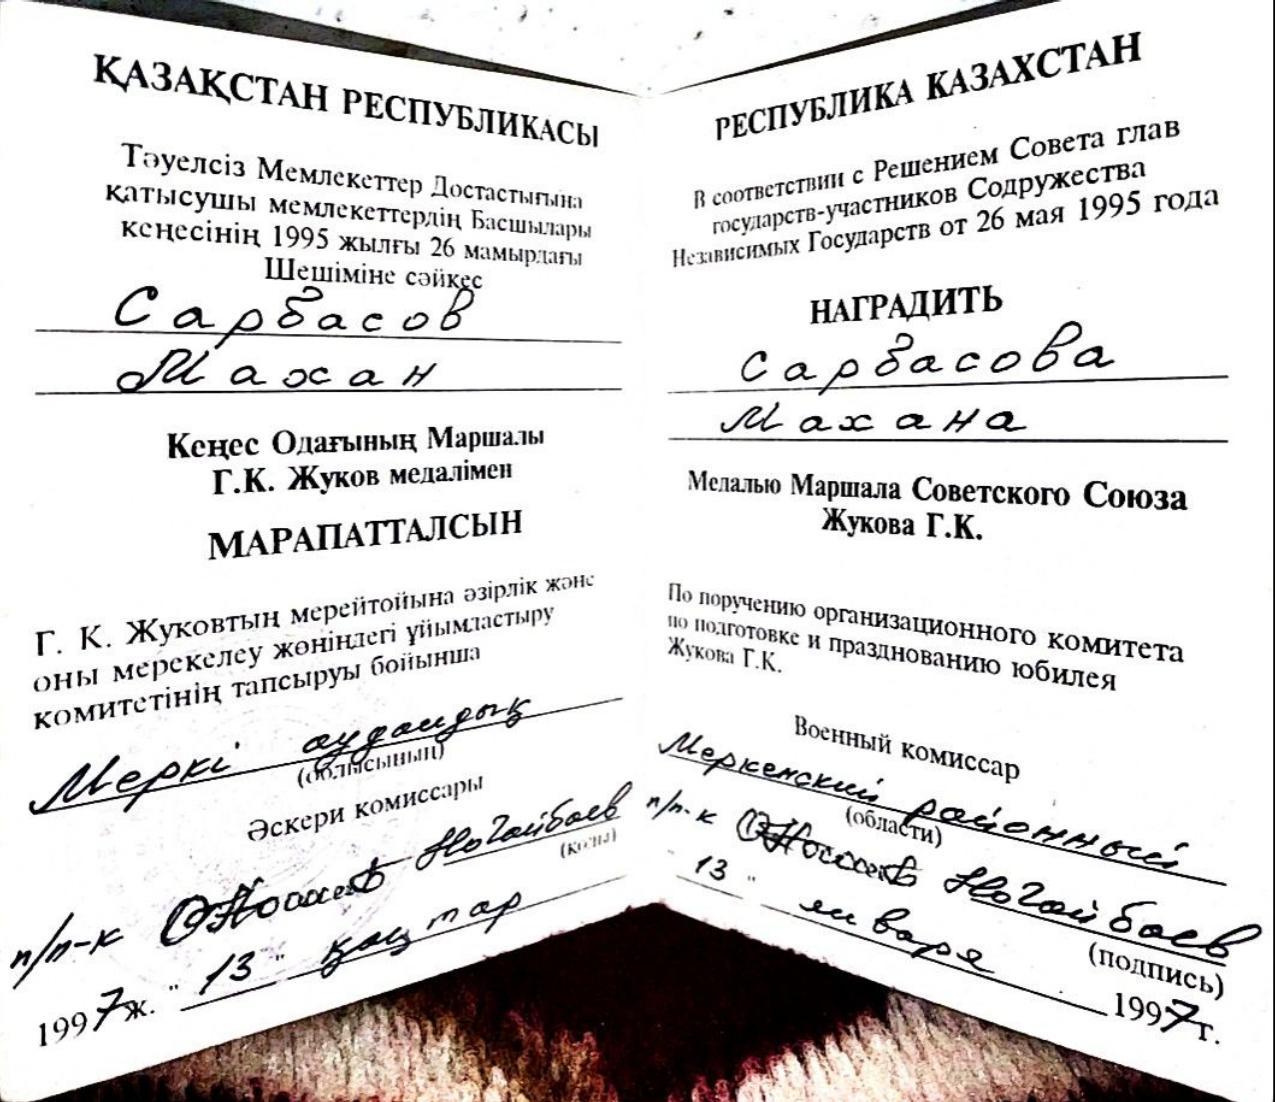 ҚАЗАҚСТАН РЕСПУБЛИКАСЫ
Тәуелсіз Мемлекеттер Достастығына
қатысушы мемлекеттердің Басшылары
кеңесінің 1995 жылғы 26 мамырдағы
Шешіміне сәйкес
Сарбасов
Махан
Кеңес Одағының Маршалы
Г.К. Жуков медалімен
МАРАПАТТАЛСЫН
Г. К. Жуковтың мерейтойына әзірлік және
оны мерекелеу жөніндегі ұйымдастыру
комитетінің тапсыруы бойынша
Меркі аудандық
(облысының)
Әскери комиссары
п/п-к Ногайбаев
(қолы)
1997 ж. "13" қаңтар
РЕСПУБЛИКА КАЗАХСТАН
В соответствии с Решением Совета глав
государств-участников Содружества
Независимых Государств от 26 мая 1995 года
НАГРАДИТЬ
Сарбасова
Махана
Медалью Маршала Советского Союза
Жукова Г.К.
По поручению организационного комитета
по подготовке и празднованию юбилея
Жукова Г.К.
Военный комиссар
Меркенский районный
(области)
п/п-к Ногайбаев
(подпись)
"13" января 1997 г.